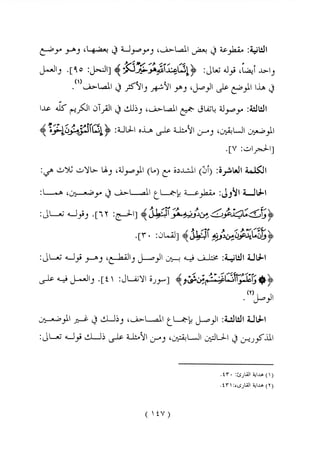 الثانية: مقطوعة في بعض المصاحف، وموصولة في بعضها، وهو موضع
واحد أيضاً، قوله تعالى: ﴿إِنَّمَا عِندَ اللَّهِ هُوَ خَيْرٌ لَّكُمْ﴾ [النحل: ٩٥]. والعمل
في هذا الموضع على الوصل، وهو الأشهر والأكثر في المصاحف.(١)
الثالثة: موصولة باتفاق جميع المصاحف، وذلك في القرآن الكريم كله عدا
الموضعين السابقين، ومن الأمثلة على هذه الحالة: ﴿إِنَّمَا الْمُؤْمِنُونَ إِخْوَةٌ﴾
[الحجرات: ٧].
الكلمة العاشرة: (أنّ) المشددة مع (ما) الموصولة، ولها حالات ثلاث هي:
الحالة الأولى: مقطوعة بإجماع المصاحف في موضعين، هما:
﴿وَأَنَّ مَا يَدْعُونَ مِن دُونِهِ هُوَ الْبَاطِلُ﴾ [الحج: ٦٢]. وقوله تعالى:
﴿وَأَنَّ مَا يَدْعُونَ مِن دُونِهِ الْبَاطِلُ﴾ [لقمان: ٣٠].
الحالة الثانية: مختلف فيه بين الوصل والقطع، وهو قوله تعالى:
﴿وَاعْلَمُوا أَنَّمَا غَنِمْتُم مِّن شَيْءٍ﴾ [سورة الأنفال: ٤١]. والعمل فيه على
الوصل.(٢)
الحالة الثالثة: الوصل بإجماع المصاحف، وذلك في غير الموضعين
المذكورين في الحالتين السابقتين، ومن الأمثلة على ذلك قوله تعالى:
(١) هداية القارئ: ٤٣٠.
(٢) هداية القارئ: ٤٣١.
(١٤٧)